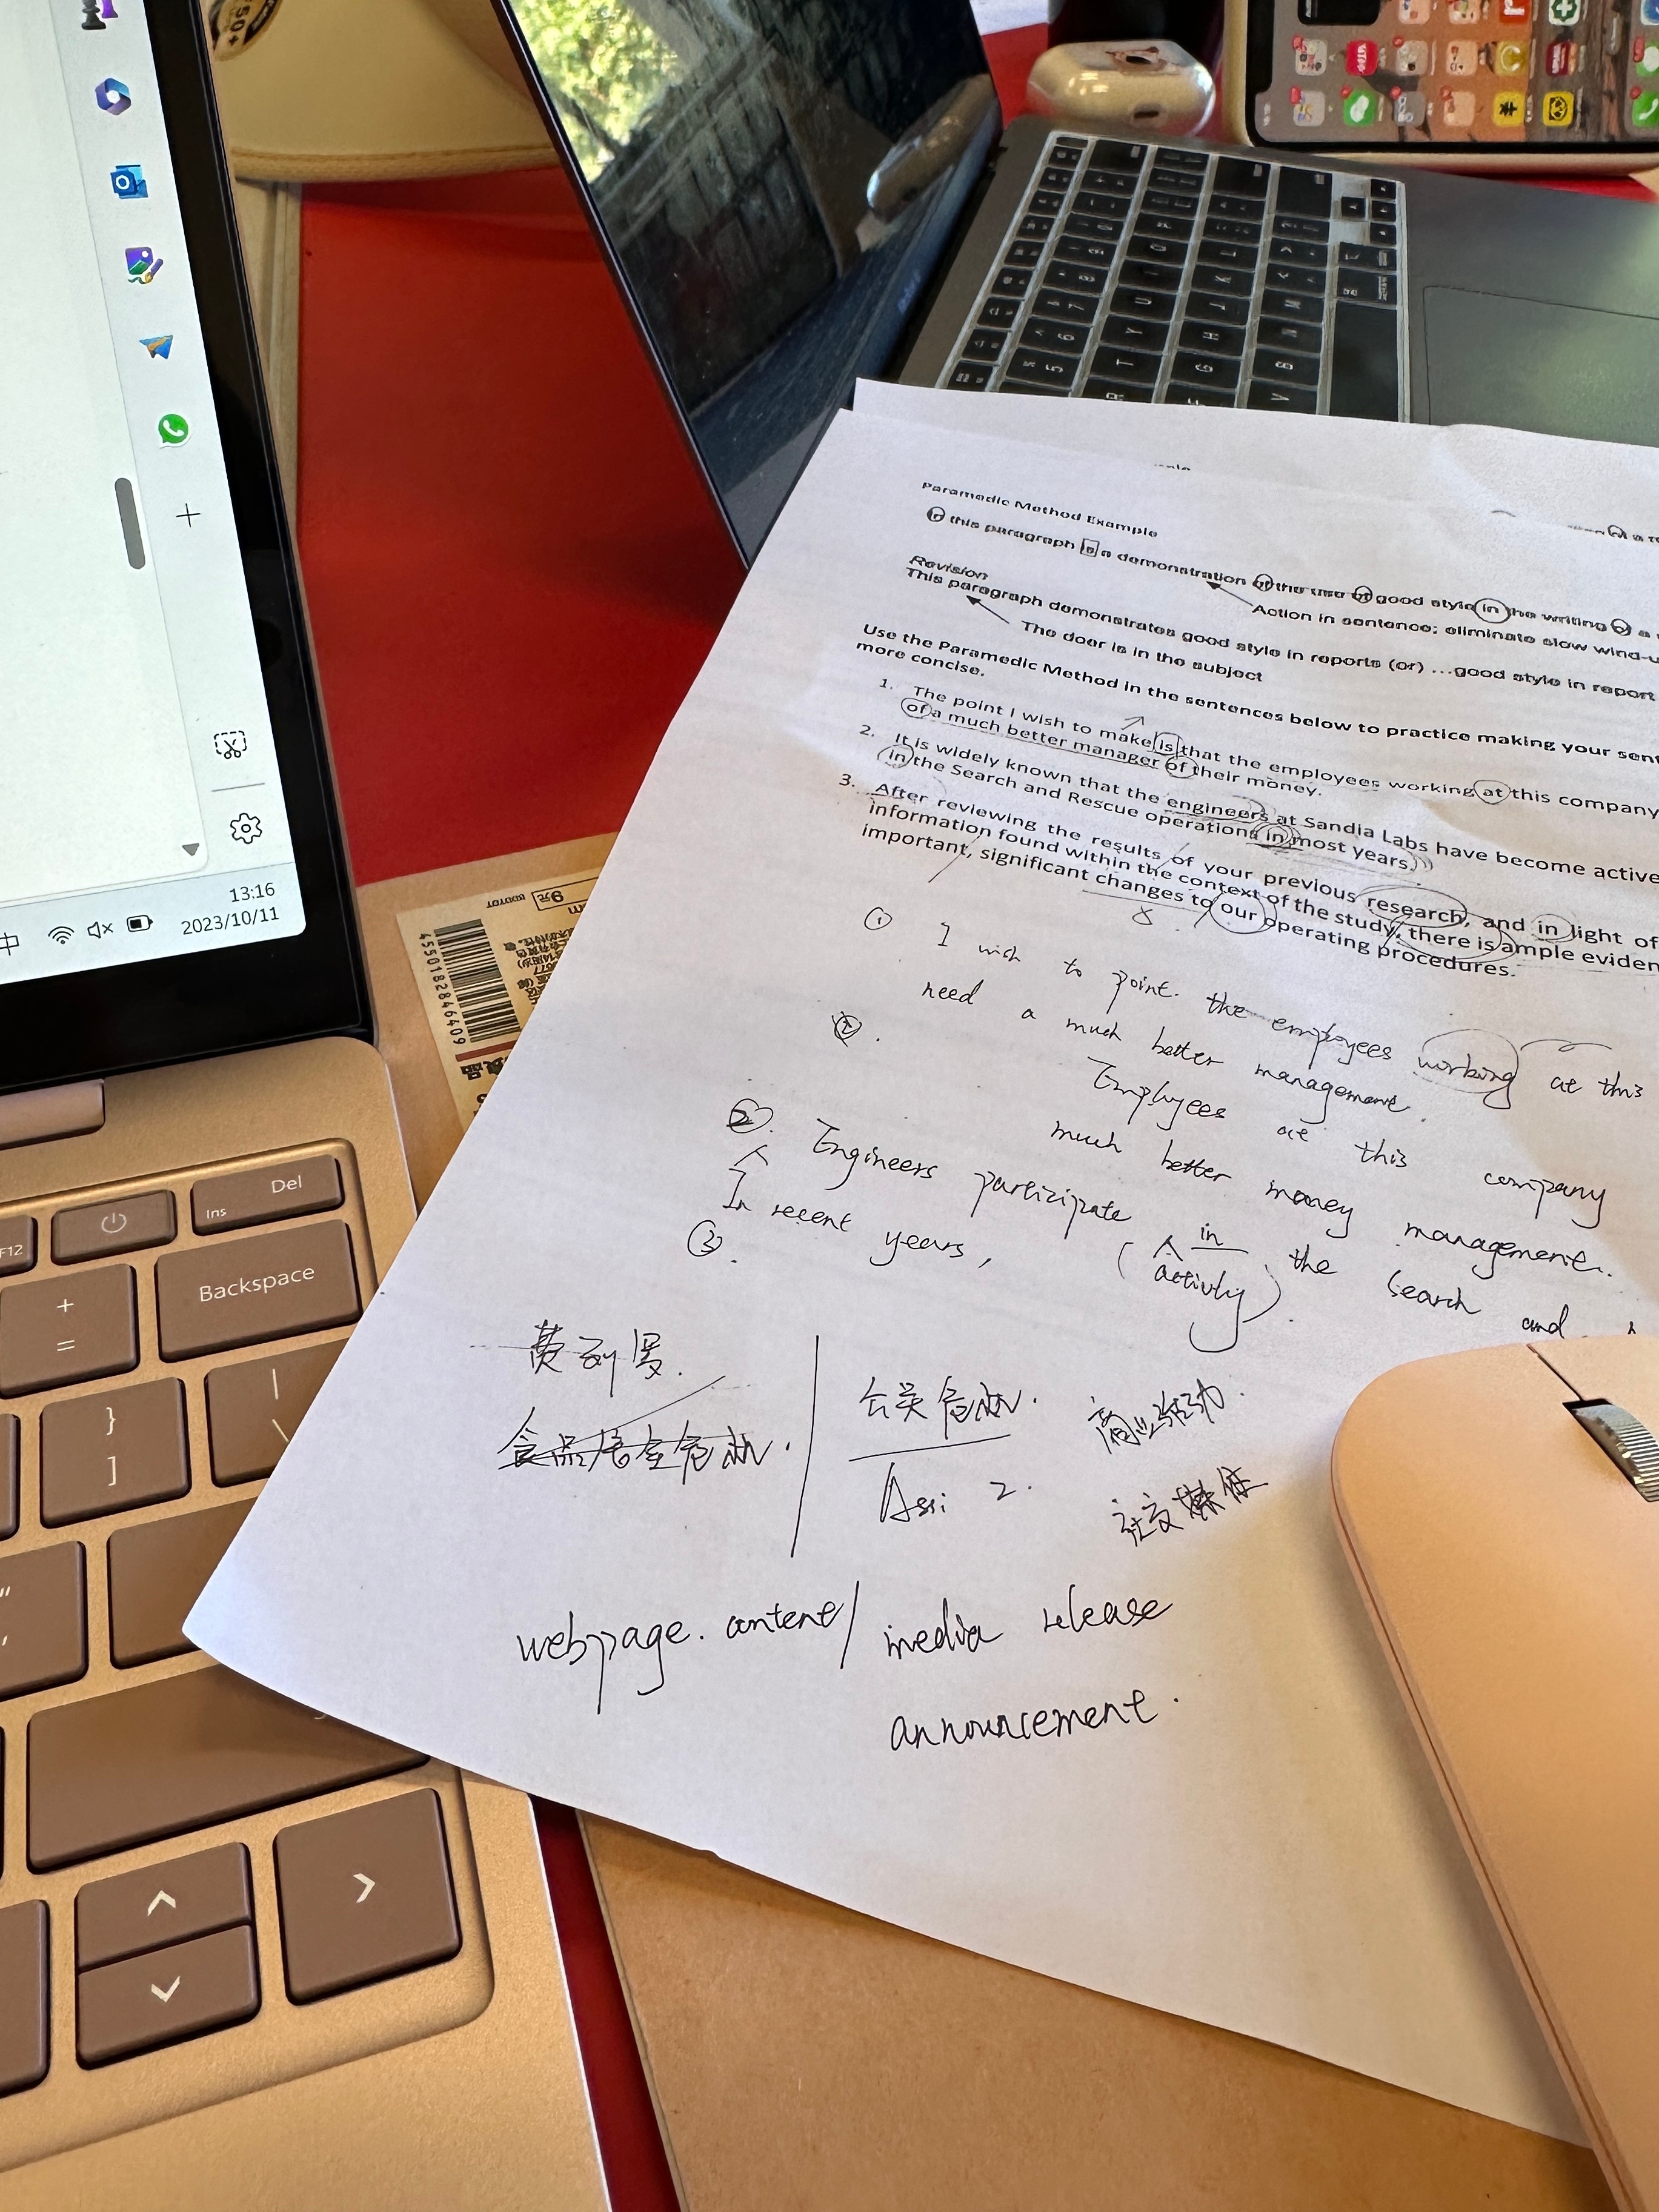 Paramedic Method Example
In this paragraph is a demonstration of the use of good style in the writing of a
Action in sentence; eliminate slow wind-u
Revision
This paragraph demonstrates good style in reports (or) ...good style in report
The doer is in the subject
Use the Paramedic Method in the sentences below to practice making your sent
more concise.
1. The point I wish to make is that the employees working at this company
of a much better manager of their money.
2. It is widely known that the engineers at Sandia Labs have become active
in the Search and Rescue operations in most years.
3. After reviewing the results of your previous research, and in light of
information found within the context of the study, there is ample eviden
important, significant changes to our operating procedures.
① I wish to point. the employees working at this
need a much better management.
Employees at this company
much better money management.
②. Engineers participate in the Search and
In recent years, (activly).
③.
费列罗.
公关危机. 商业活动.
Assi 2. 社交媒体
webpage. content/ media release
announcement.
13:16
2023/10/11
Del
Ins
F12
Backspace
+
=
}
]
4550182846409